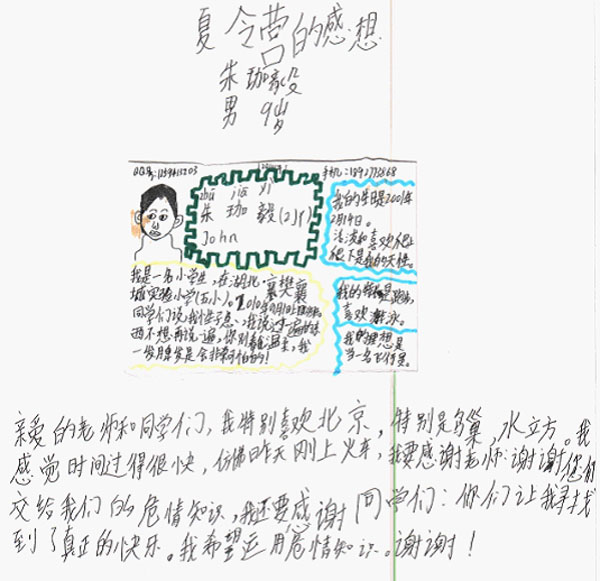 夏令营的感想
朱珈毅
男 9岁
zhū jiā yì
朱 珈 毅(2了8)
John
我的生日是2001年
2月19日。
活泼和喜欢
我是一名小学生,在湖北·襄樊襄
城实验小学(五小)。2010年9月1日
同学们说我性子急、我说过一遍的东
西不想再说一遍,你别看我温柔,我
一发脾气是会非常可怕的!
我的特长是跑步,
喜欢游泳。
我的理想是
当一名飞行员。
亲爱的老师和同学们,我特别喜欢北京,特别是鸟巢,水立方。我
感觉时间过得很快,仿佛昨天刚上火车,我要感谢老师:谢谢您们
交给我们的危情知识,我还要感谢同学们:你们让我寻找
到了真正的快乐。我希望运用危情知识。谢谢!